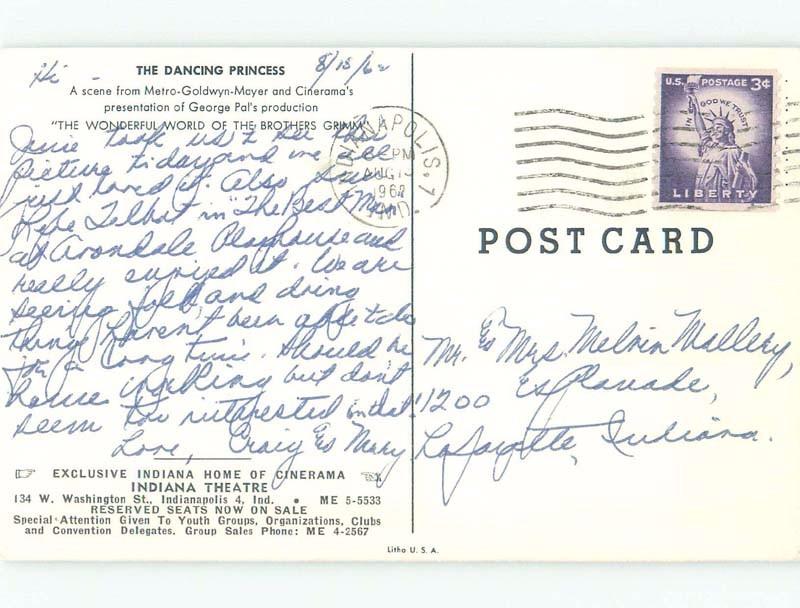 Hi - THE DANCING PRINCESS 8/15/62
A scene from Metro-Goldwyn-Mayer and Cinerama's
presentation of George Pal's production
"THE WONDERFUL WORLD OF THE BROTHERS GRIMM"
June took us to see this
picture today and we all
just loved it. Also saw
Lyle Talbot in "The Best Man"
at Avondale Playhouse and
really enjoyed it. We are
seeing folk and doing
things haven't been able to do
for a long time. Should be
house but don't
seem too interested in that.
Love, Craig & Mary
EXCLUSIVE INDIANA HOME OF CINERAMA
INDIANA THEATRE
134 W. Washington St., Indianapolis 4, Ind. • ME 5-5533
RESERVED SEATS NOW ON SALE
Special Attention Given To Youth Groups, Organizations, Clubs
and Convention Delegates. Group Sales Phone: ME 4-2567
INDIANAPOLIS, 7
PM
AUG 15
1962
IND.
U.S. POSTAGE 3¢
IN GOD WE TRUST
LIBERTY
POST CARD
Mr. & Mrs. Melvin Mallery,
1200 Esplanade,
Lafayette, Indiana.
Litho U. S. A.